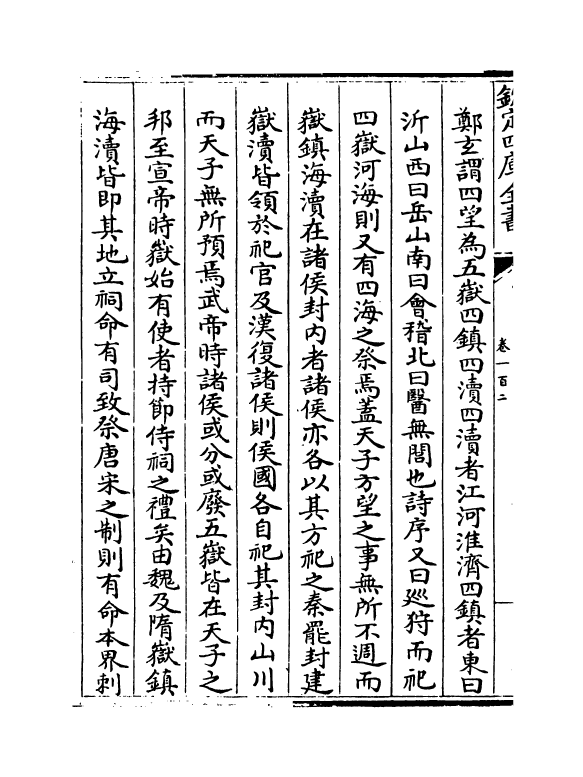 欽定四庫全書
卷一百二
鄭玄謂四望為五嶽四鎮四瀆四瀆者江河淮濟四鎮者東曰
沂山西曰岳山南曰會稽北曰醫無閭也詩序又曰巡狩而祀
四嶽河海則又有四海之祭焉蓋天子方望之事無所不週而
嶽鎮海瀆在諸侯封内者諸侯亦各以其方祀之秦罷封建
嶽瀆皆領於祀官及漢復諸侯則侯國各自祀其封内山川
而天子無所預焉武帝時諸侯或分或廢五嶽皆在天子之
邦至宣帝時嶽始有使者持節侍祠之禮矣由魏及隋嶽鎮
海瀆皆即其地立祠命有司致祭唐宋之制則有命本界刺